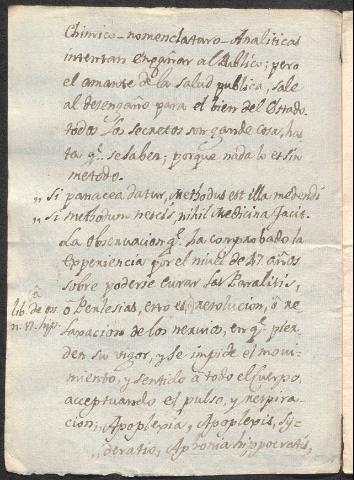 Chimico-nomenclaturo-Analiticas
intentan engañar al Publico; pero
el amante de la salud publica, sale
al desengaño para el bien del Estado.
todos los secretos son grande cosa, has
ta q.e se saben; porque nada lo es sin
metodo.
„ Si panacea datur, Methodus est illa medendi
„ Si methodum nescis, nihil Medicina facit.
La Observacion q.e ha comprobado la
Experiencia por el nivel de 47 años
sobre poderse curar las Paralisis,
ò Perlesias, esto es, resolucion, ò re
laxacion de los nervios, en q.e pier
den su vigor, y se impide el movi-
miento, y sentido à todo el Cuerpo,
aceptuando el pulso, y respira
cion; Apoplexia, Apoplexis, Sy-
deratio, Aphonia hippocratis,
â
lib. de
n. 17.